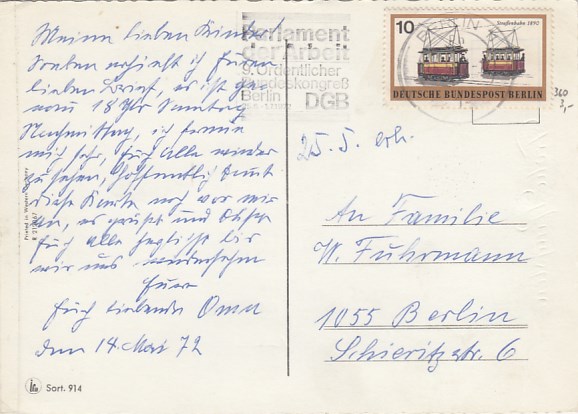 Meine lieben Kinder!
Soeben erhielt ich Euren
lieben Brief, es ist ge-
nau 18 Uhr Sonntag
Nachmittag, ich freue
mich sehr, Euch alle wieder
zu sehen, hoffentlich kommt
diese Karte noch vor mir
an, es grüßt und küßt
Euch alle herzlichst bis
wir uns wiedersehen
Eure
Euch liebende Oma
den 14. Mai 72
Parlament
der Arbeit
9. Ordentlicher
Bundeskongreß
Berlin
DGB
10
Straßenbahn 1890
BERLIN
DEUTSCHE BUNDESPOST BERLIN
360
3,-
25. 5. erh.
An Familie
W. Fuhrmann
1055 Berlin
Schieritzstr. 6
Printed in Western Germany
Sort. 914